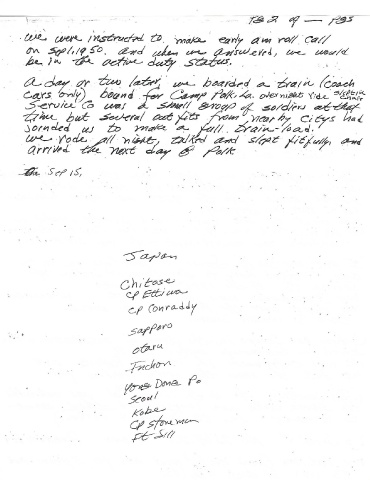 we were instructed to make early am roll call
on sept 1, 1950. and when we answered, we would
be in the active duty status.
A day or two later, we boarded a train (coach
cars only) bound for Camp Polk La. overnight ride
Service Co was a small group of soldiers at that
time but several outfits from nearby citys had
joinded us to make a full train-load.
we rode all night, talked and slept fitfully and
arrived the next day @ Polk
Sep 15,
Japan
Chitose
CP
CP Conraddy
Sapporo
otaru
Inchon
Yong Dong Po
Seoul
Kobe
CP Stoneman
Ft Sill